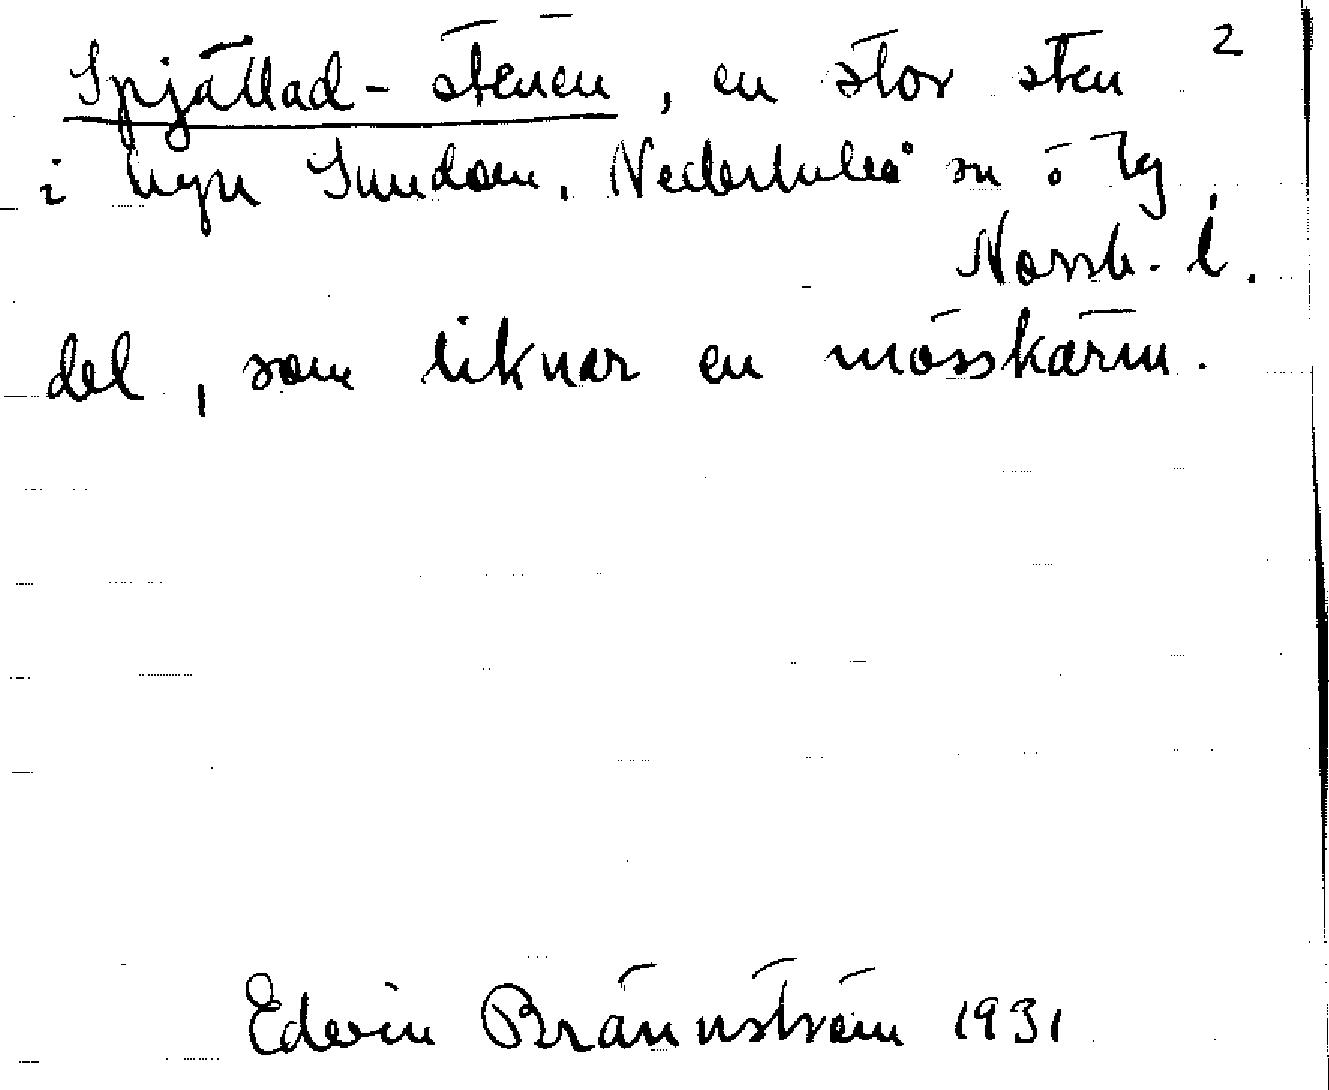 Spjällad-stenen, en stor sten 2
i byn Sundom, Nederluleå sn ö tg,
Norrb. l.
del, som liknar en mösskärm.
Edvin Brännström 1931